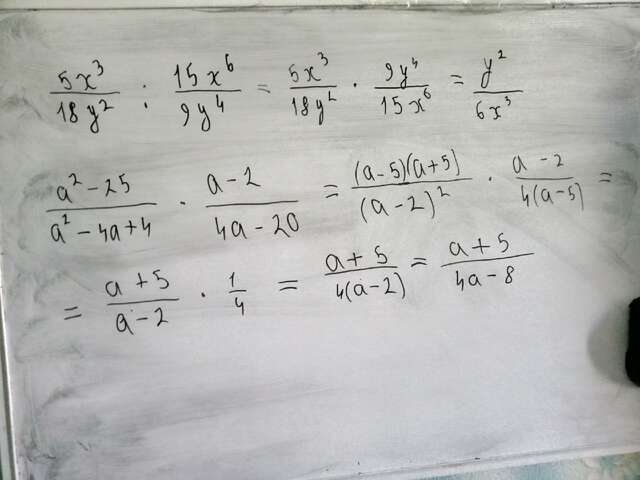 5x³/18y² : 15x⁶/9y⁴ = 5x³/18y² · 9y⁴/15x⁶ = y²/6x³
a²-25/a²-4a+4 · a-2/4a-20 = (a-5)(a+5)/(a-2)² · a-2/4(a-5) =
= a+5/a-2 · 1/4 = a+5/4(a-2) = a+5/4a-8